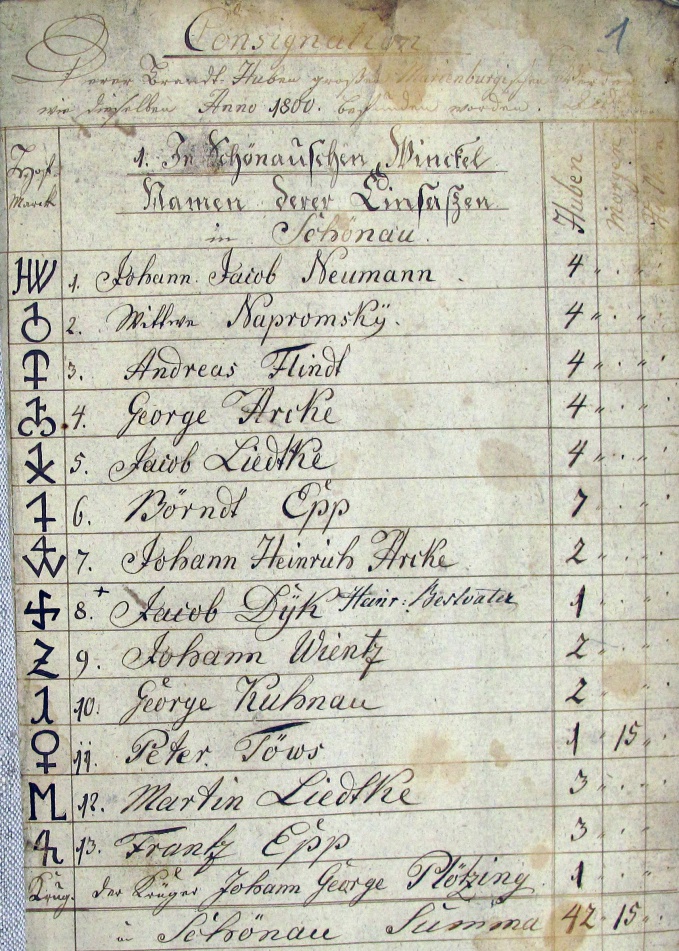 1
Consignation
Derer Brandt-Huben großen Marienburgschen
wie dieselben Anno 1800. befunden worden.
Hoff-Marck
1. In Schönauschen Winckel
Namen derer Einsaßen
in Schönau.
Huben Morgen
HW 1. Johann Jacob Neumann 4 " . "
2. Wittwe Napromskÿ. 4 " . "
3. Andreas Flindt 4 " . "
4. George Arcke 4 " . "
5. Jacob Liedtke 4 " . "
6. Börndt Epp 7 " . "
7. Johann Heinrich Arcke 2 " . "
8. + Jacob Dÿk Heinr: Bestvater 1 " . "
9. Johann Wientz 2 " . "
10. George Kuhnau 2 " . "
11. Peter Töws 1 " 15 "
12. Martin Liedtke 3 " . "
13. Frantz Epp 3 " . "
Krug. der Krüger Johann George Plötzing 1 " . "
in Schönau Summa 42 " 15 "